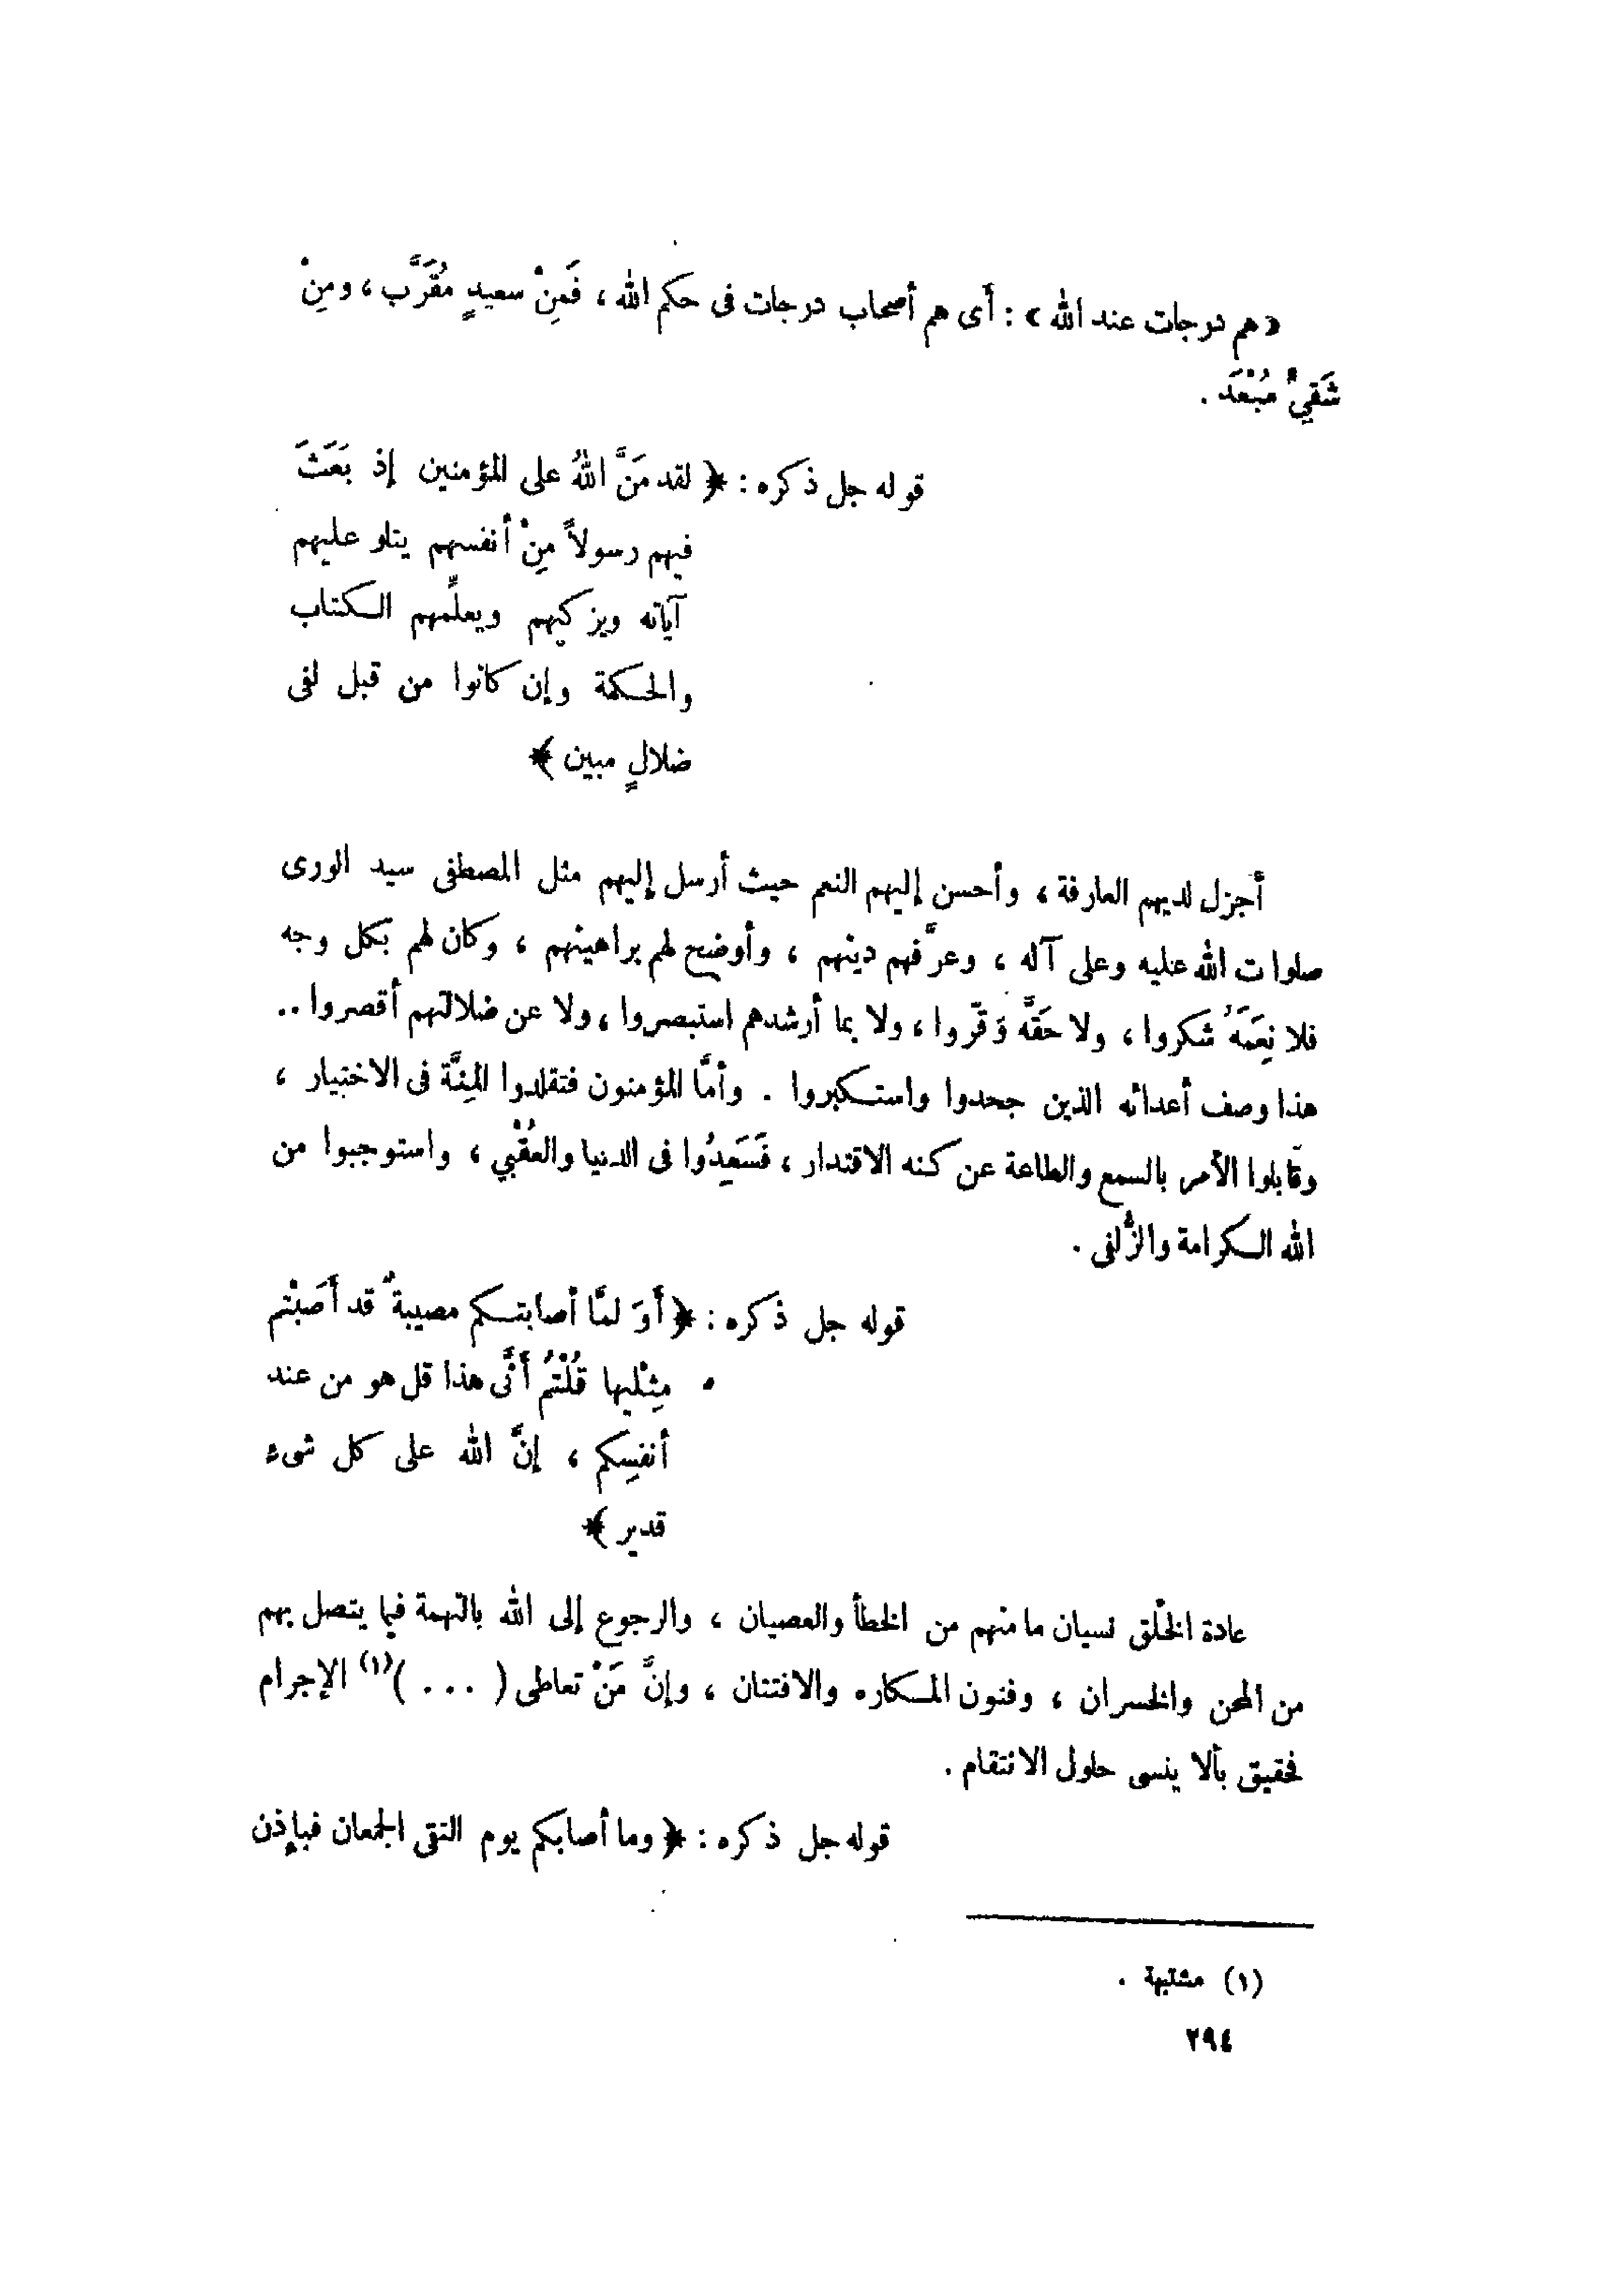 «هم درجات عند الله» : أى هم أصحاب درجات فى حكم الله ، فَمِنْ سعيدٍ مُقَرَّب ، ومِنْ
شَقِيٍّ مُبْعَد .
قوله جل ذكره : ﴿ لقد مَنَّ اللهُ على المؤمنين إذ بَعَثَ
فيهم رسولاً مِنْ أنفسهم يتلو عليهم
آياته ويزكيهم ويعلِّمهم الكتاب
والحكمة وإن كانوا من قبل لفى
ضلالٍ مبين ﴾
أجزل لديهم العارفة ، وأحسن إليهم النعم حيث أرسل إليهم مثل المصطفى سيد الورى
صلوات الله عليه وعلى آله ، وعرَّفهم دينهم ، وأوضح لهم براهينهم ، وكان لهم بكل وجه
فلا نِعَمَهُ شكروا ، ولا حَقَّه وَقَّروا ، ولا بما أرشدهم استبصروا ، ولا عن ضلالتهم أقصروا ..
هذا وصف أعدائه الذين جحدوا واستكبروا . وأمَّا المؤمنون فتقلدوا المِنَّة فى الاختيار ،
وقَابلوا الأمر بالسمع والطاعة عن كنه الاقتدار ، فَسَعِدُوا فى الدنيا والعُقْبي ، واستوجبوا من
الله الكرامة والزُّلفى .
قوله جل ذكره : ﴿ أَوَ لمَّا أصابتكم مصيبةٌ قد أَصَبْتم
مِثْليها قُلْتُمْ أَنَّى هذا قل هو من عند
أنفسِكم ، إنَّ الله على كل شىء
قدير ﴾
عادة الخَلْق نسيان ما منهم من الخطأ والعصيان ، والرجوع إلى الله بالتهمة فيما يتصل بهم
من المحن والخسران ، وفنون المكاره والافتتان ، وإنَّ مَنْ تعاطى ( ... )(١) الإجرام
فحقيق بألا ينسى حلول الانتقام .
قوله جل ذكره : ﴿ وما أصابكم يوم التقى الجمعان فبإذن
(١) مشتبهة .
٢٩٤